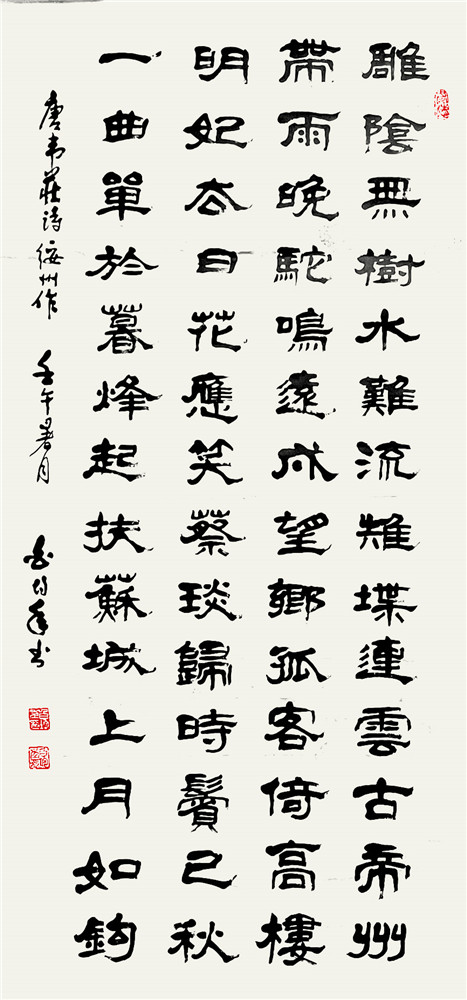 雕陰無樹水難流雉堞連雲古帝州
帶雨晚駝鳴遠戍望鄉孤客倚高樓
明妃去日花應笑蔡琰歸時鬢已秋
一曲單於暮烽起扶蘇城上月如鈎
唐韋莊詩綏州作 壬午暑月 書